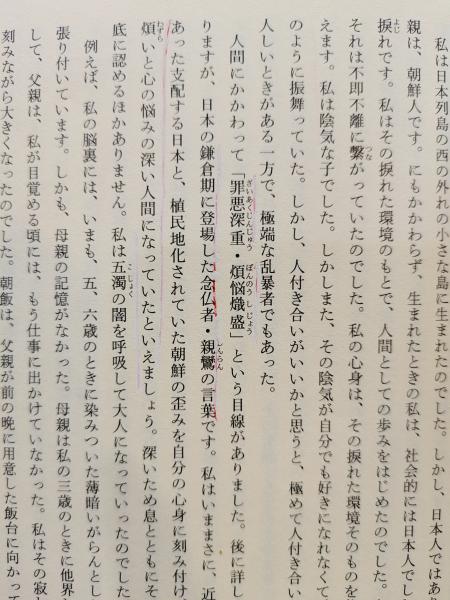 私は日本列島の西の外れの小さな島に生まれたのでした。しかし、日本人ではあ
親は、朝鮮人です。にもかかわらず、生まれたときの私は、社会的には日本人でし
捩れです。私はその捩れた環境のもとで、人間としての歩みをはじめたのでした。
それは不即不離に繋がっていたのでした。私の心身は、その捩れた環境そのものを
えます。私は陰気な子でした。しかしまた、その陰気が自分でも好きになれなくて
のように振舞っていた。しかし、人付き合いがいいかと思うと、極めて人付き合い
人しいときがある一方で、極端な乱暴者でもあった。
人間にかかわって「罪悪深重・煩悩熾盛」という目線がありました。後に詳し
りますが、日本の鎌倉期に登場した念仏者・親鸞の言葉です。私はいままさに、近
あった支配する日本と、植民地化されていた朝鮮の歪みを自分の心身に刻み付け、
煩いと心の悩みの深い人間になっていたといえましょう。深いため息とともにそ
底に認めるほかありません。私は五濁の闇を呼吸して大人になっていったのでした
例えば、私の脳裏には、いまも、五、六歳のときに染みついた薄暗いがらんとし
張り付いています。しかも、母親の記憶がなかった。母親は私の三歳のときに他界
して、父親は、私が目覚める頃には、もう仕事に出かけていなかった。私はその寂し
刻みながら大きくなったのでした。朝飯は、父親が前の晩に用意した飯台に向かって